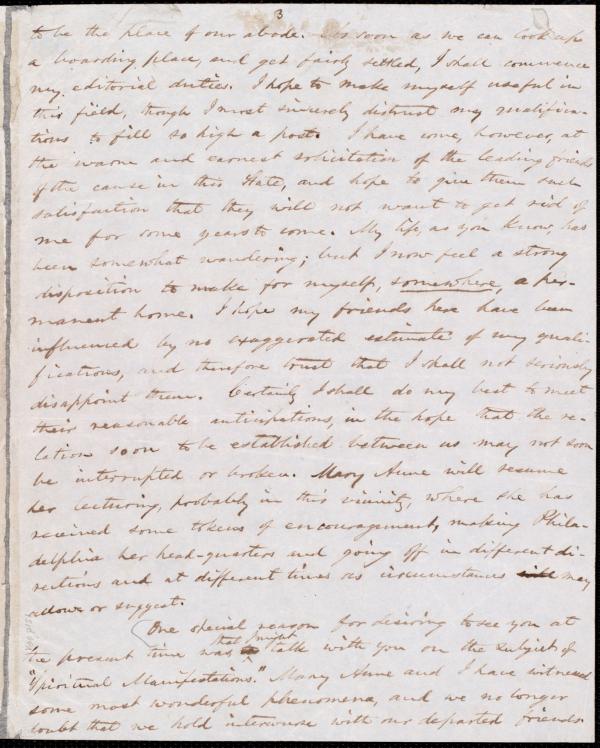 3
to be the place of our abode. As soon as we can look up
a boarding place, and get fairly settled, I shall commence
my editorial duties. I hope to make myself useful in
this field, though I most sincerely distrust my qualifica-
tions to fill so high a post. I have come, however, at
the warm and earnest solicitation of the leading friends
of the cause in this State, and hope to give them such
satisfaction that they will not want to get rid of
me for some years to come. My life, as you know, has
been somewhat wandering; but I now feel a strong
disposition to make for myself, somewhere, a per-
manent home. I hope my friends here have been
influenced by no exaggerated estimate of my quali-
fications, and therefore trust that I shall not seriously
disappoint them. Certainly I shall do my best to meet
their reasonable anticipations, in the hope that the re-
lation soon to be established between us may not soon
be interrupted or broken. Mary Anne will resume
her lecturing, probably in this vicinity, where she has
received some tokens of encouragement, making Phila-
delphia her head-quarters and going off in different di-
rections and at different times as circumstances will may
allow or suggest.
One special reason for desiring to see you at
the present time was that I might talk with you on the subject of
"Spiritual Manifestations." Mary Anne and I have witnessed
some most wonderful phenomena, and we no longer
doubt that we hold intercourse with our departed friends